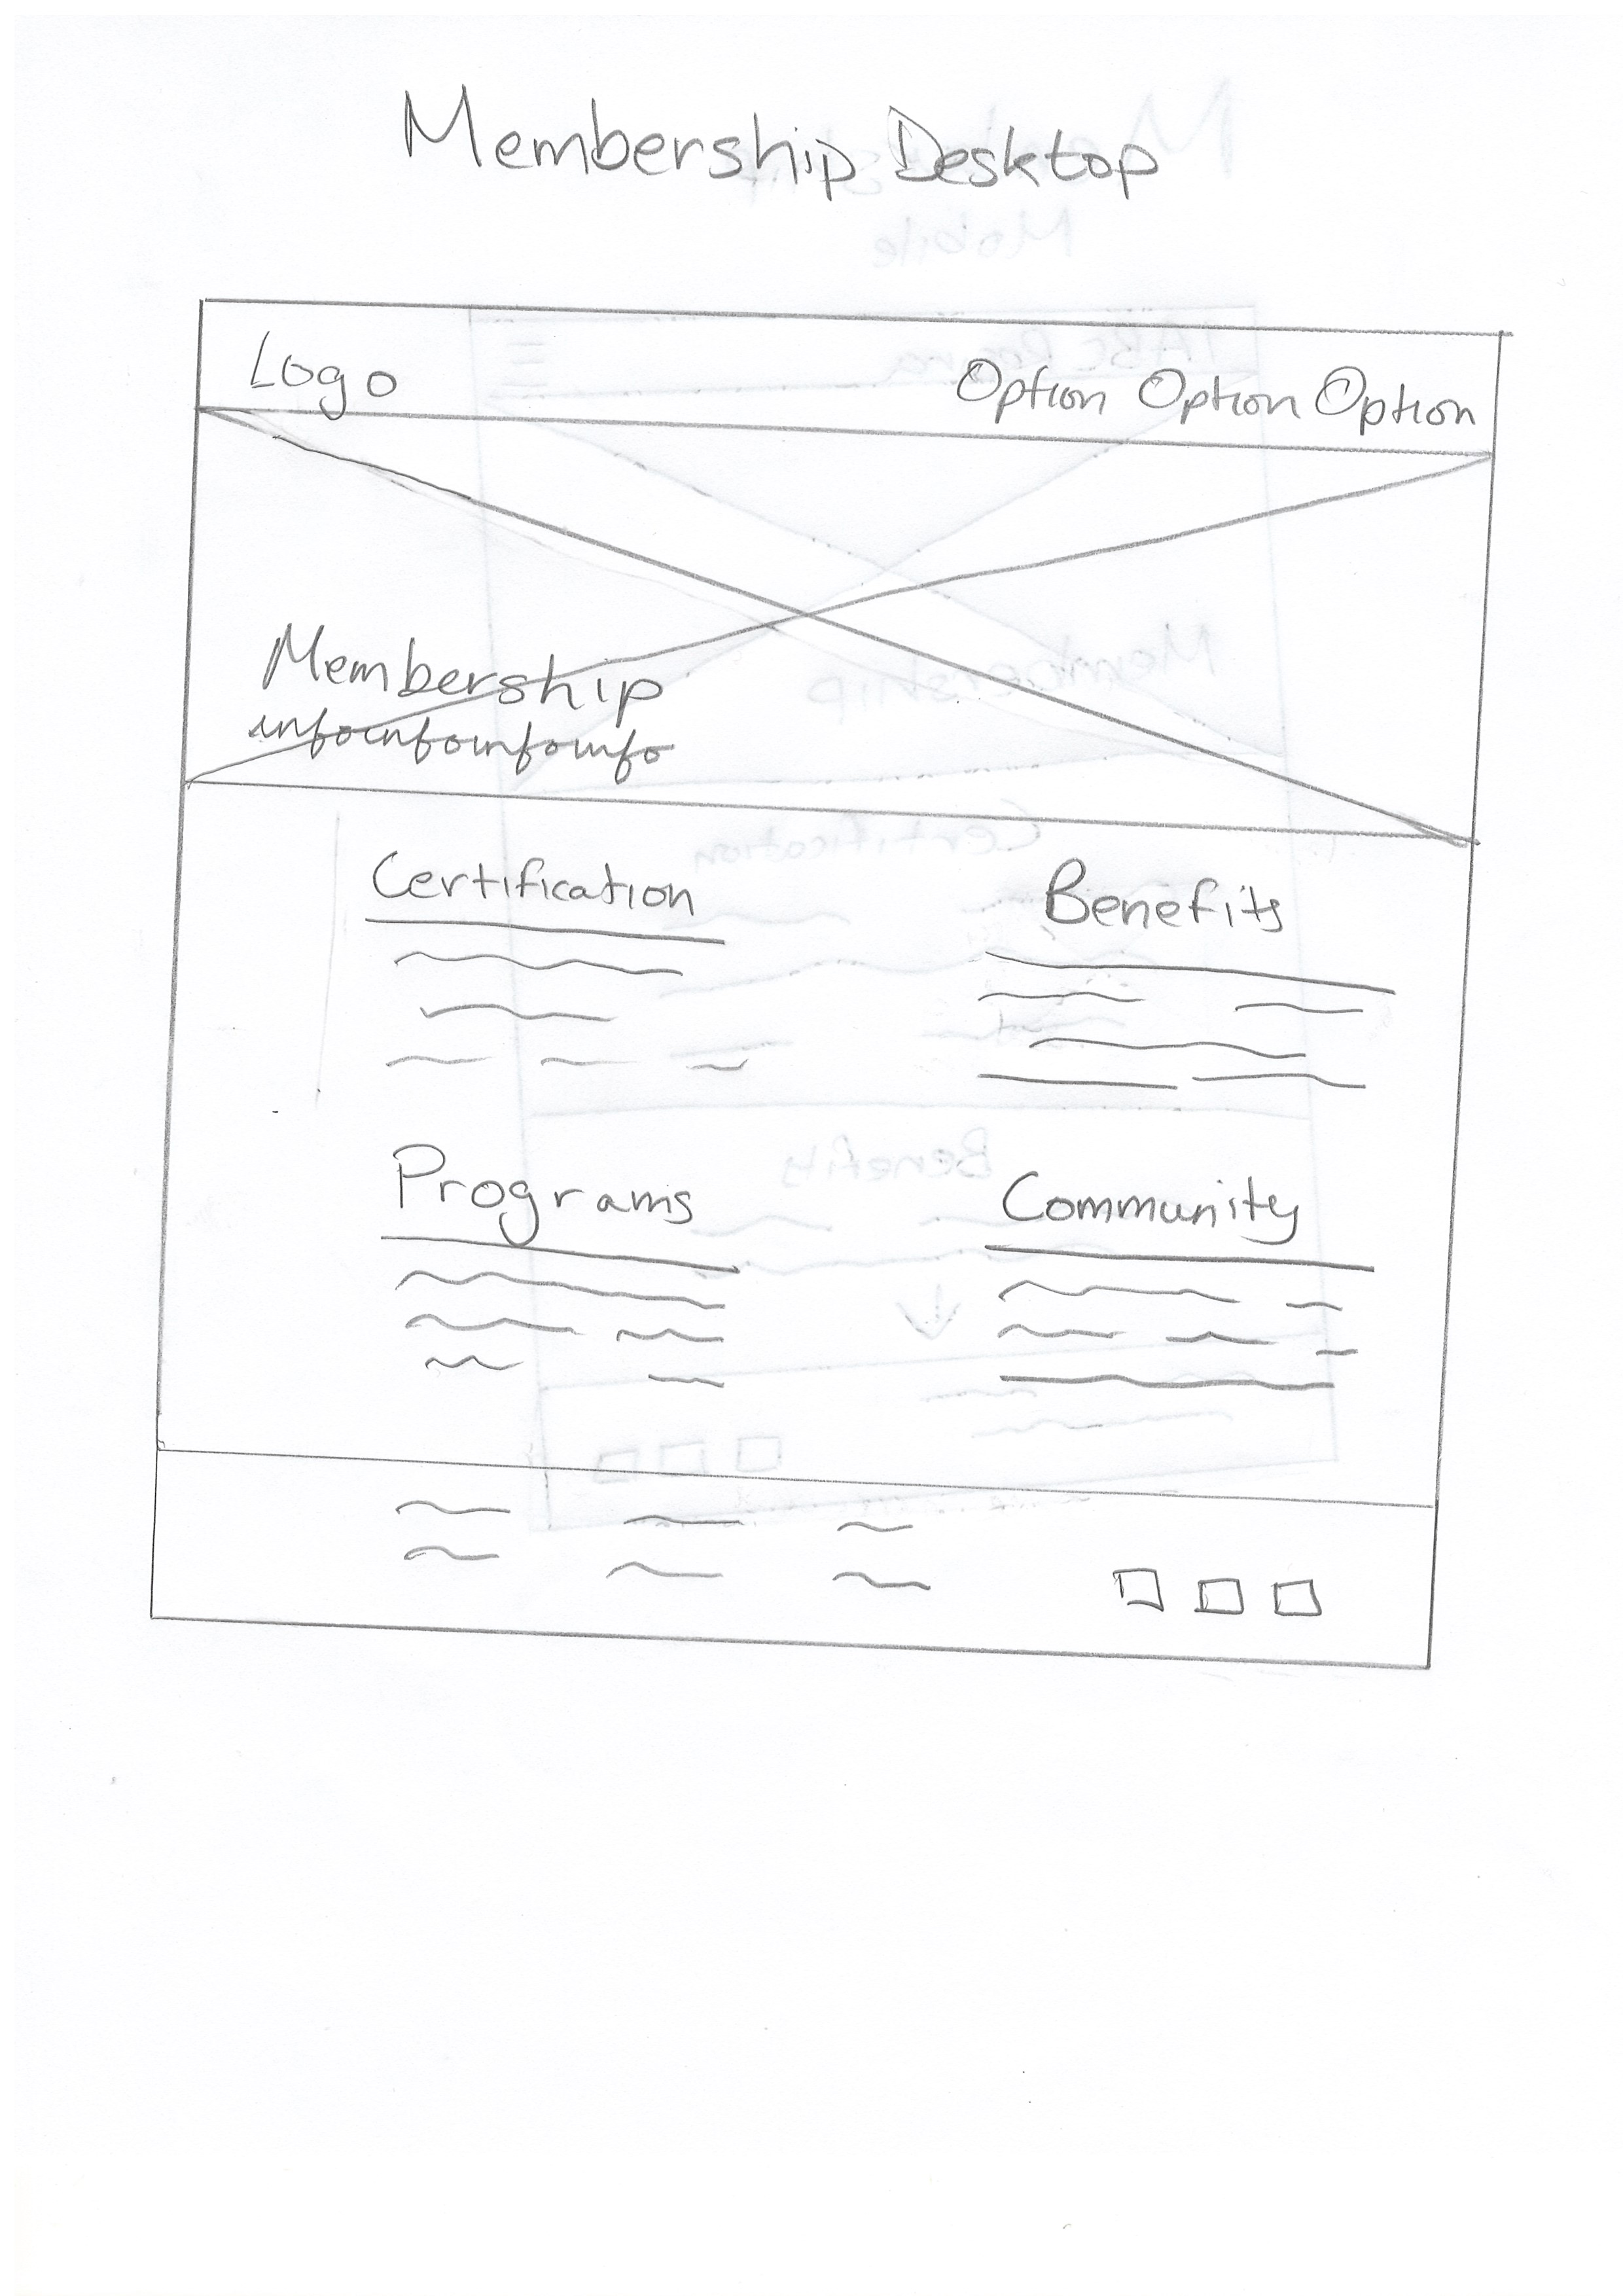 Membership Desktop
Logo Option Option Option
Membership
infoinfoinfoinfo
Certification Benefits
Programs Community